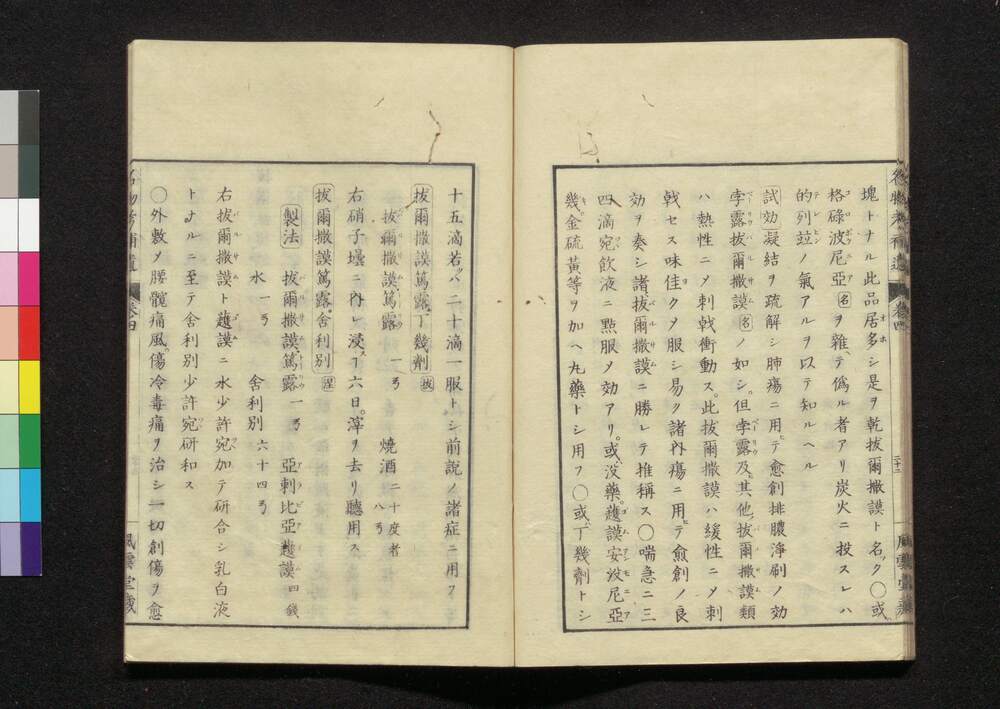 塊トナル此品居多シ是ヲ乾拔爾撒謨ト名ク〇或
格碌波尼亞名ヲ雜テ僞ル者アリ炭火ニ投スレハ
的列竝ノ氣アルヲ以テ知ルヘル
試効凝結ヲ疏解シ肺瘍ニ用テ愈創排膿淨刷ノ効
孛露拔爾撒謨名ノ如シ但孛露及其他拔爾撒謨類
ハ熱性ニメ刺戟衝動ス此拔爾撒謨ハ緩性ニメ刺
戟セス味佳クメ服シ易ク諸內瘍ニ用テ愈創ノ良
効ヲ奏シ諸拔爾撒謨ニ勝レテ推稱ス〇喘急ニ三
四滴宛飮液ニ點服メ効アリ或沒藥護謨安沒尼亞
幾金硫黃等ヲ加ヘ丸藥トシ用フ〇或丁幾劑トシ
十五滴若ハ二十滴一服トシ前說ノ諸症ニ用フ
拔爾撒謨篤露丁幾劑
拔爾撒謨篤露 一ヲ 燒酒二十度者 八ヲ
右硝子壜ニ內レ浸ス六日滓ヲ去リ聽用ス
拔爾撒謨篤露舍利別
製法 拔爾撒謨篤露一ヲ 亞剌比亞護謨四錢
水一ヲ 舍利別六十四ヲ
右拔爾撒謨ト護謨ニ水少許宛加テ硏合シ乳白液
トナルニ至テ舍利別少許宛硏和ス
〇外敷メ腰髖痛風傷冷毒痛ヲ治シ一切創傷ヲ愈
卷四
風雲堂藏